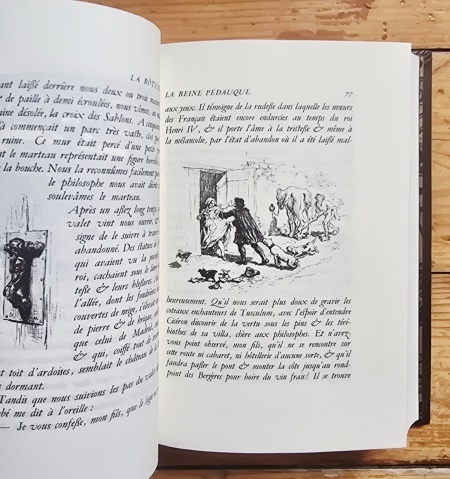 LA RÔTIS
ant laissé derrière nous deux ou trois mai
de paille à demi écroulées, nous vîmes, au
aine désolée, la croix des Sablons. A cinquante
là commençait un parc très vaste, clos
ruine. Ce mur était percé d'une petite
t le marteau représentait une figure horrible
la bouche. Nous la reconnûmes facilement po
le philosophe nous avait décrite
soulevâmes le marteau.
Après un assez long temps,
valet vint nous ouvrir, &
signe de le suivre à travers
abandonné. Des statues de
qui avaient vu la
roi, cachaient sous le
tesse & leurs blessures.
l'allée, dont les fondrières
couvertes de neige,
de pierre & de brique,
que celui de Madrid,
& qui, coiffé tout de
toit d'ardoises, semblait le château de la
dormant.
Tandis que nous suivions les pas du valet
bé me dit à l'oreille :
— Je vous confesse, mon fils, que le logis
LA REINE PÉDAUQUE. 77
aux yeux. Il témoigne de la rudesse dans laquelle les mœurs
des Français étaient encore endurcies au temps du roi
Henri IV, & il porte l'âme à la tristesse & même à
la mélancolie, par l'état d'abandon où il a été laissé mal-
heureusement. Qu'il nous serait plus doux de gravir les
coteaux enchanteurs de Tusculum, avec l'espoir d'entendre
Cicéron discourir de la vertu sous les pins & les téré-
binthes de sa villa, chère aux philosophes. Et n'avez-
vous point observé, mon fils, qu'il ne se rencontre sur
cette route ni cabaret, ni hôtellerie d'aucune sorte, & qu'il
faudra passer le pont & monter la côte jusqu'au rond-
point des Bergères pour boire du vin frais? Il se trouve